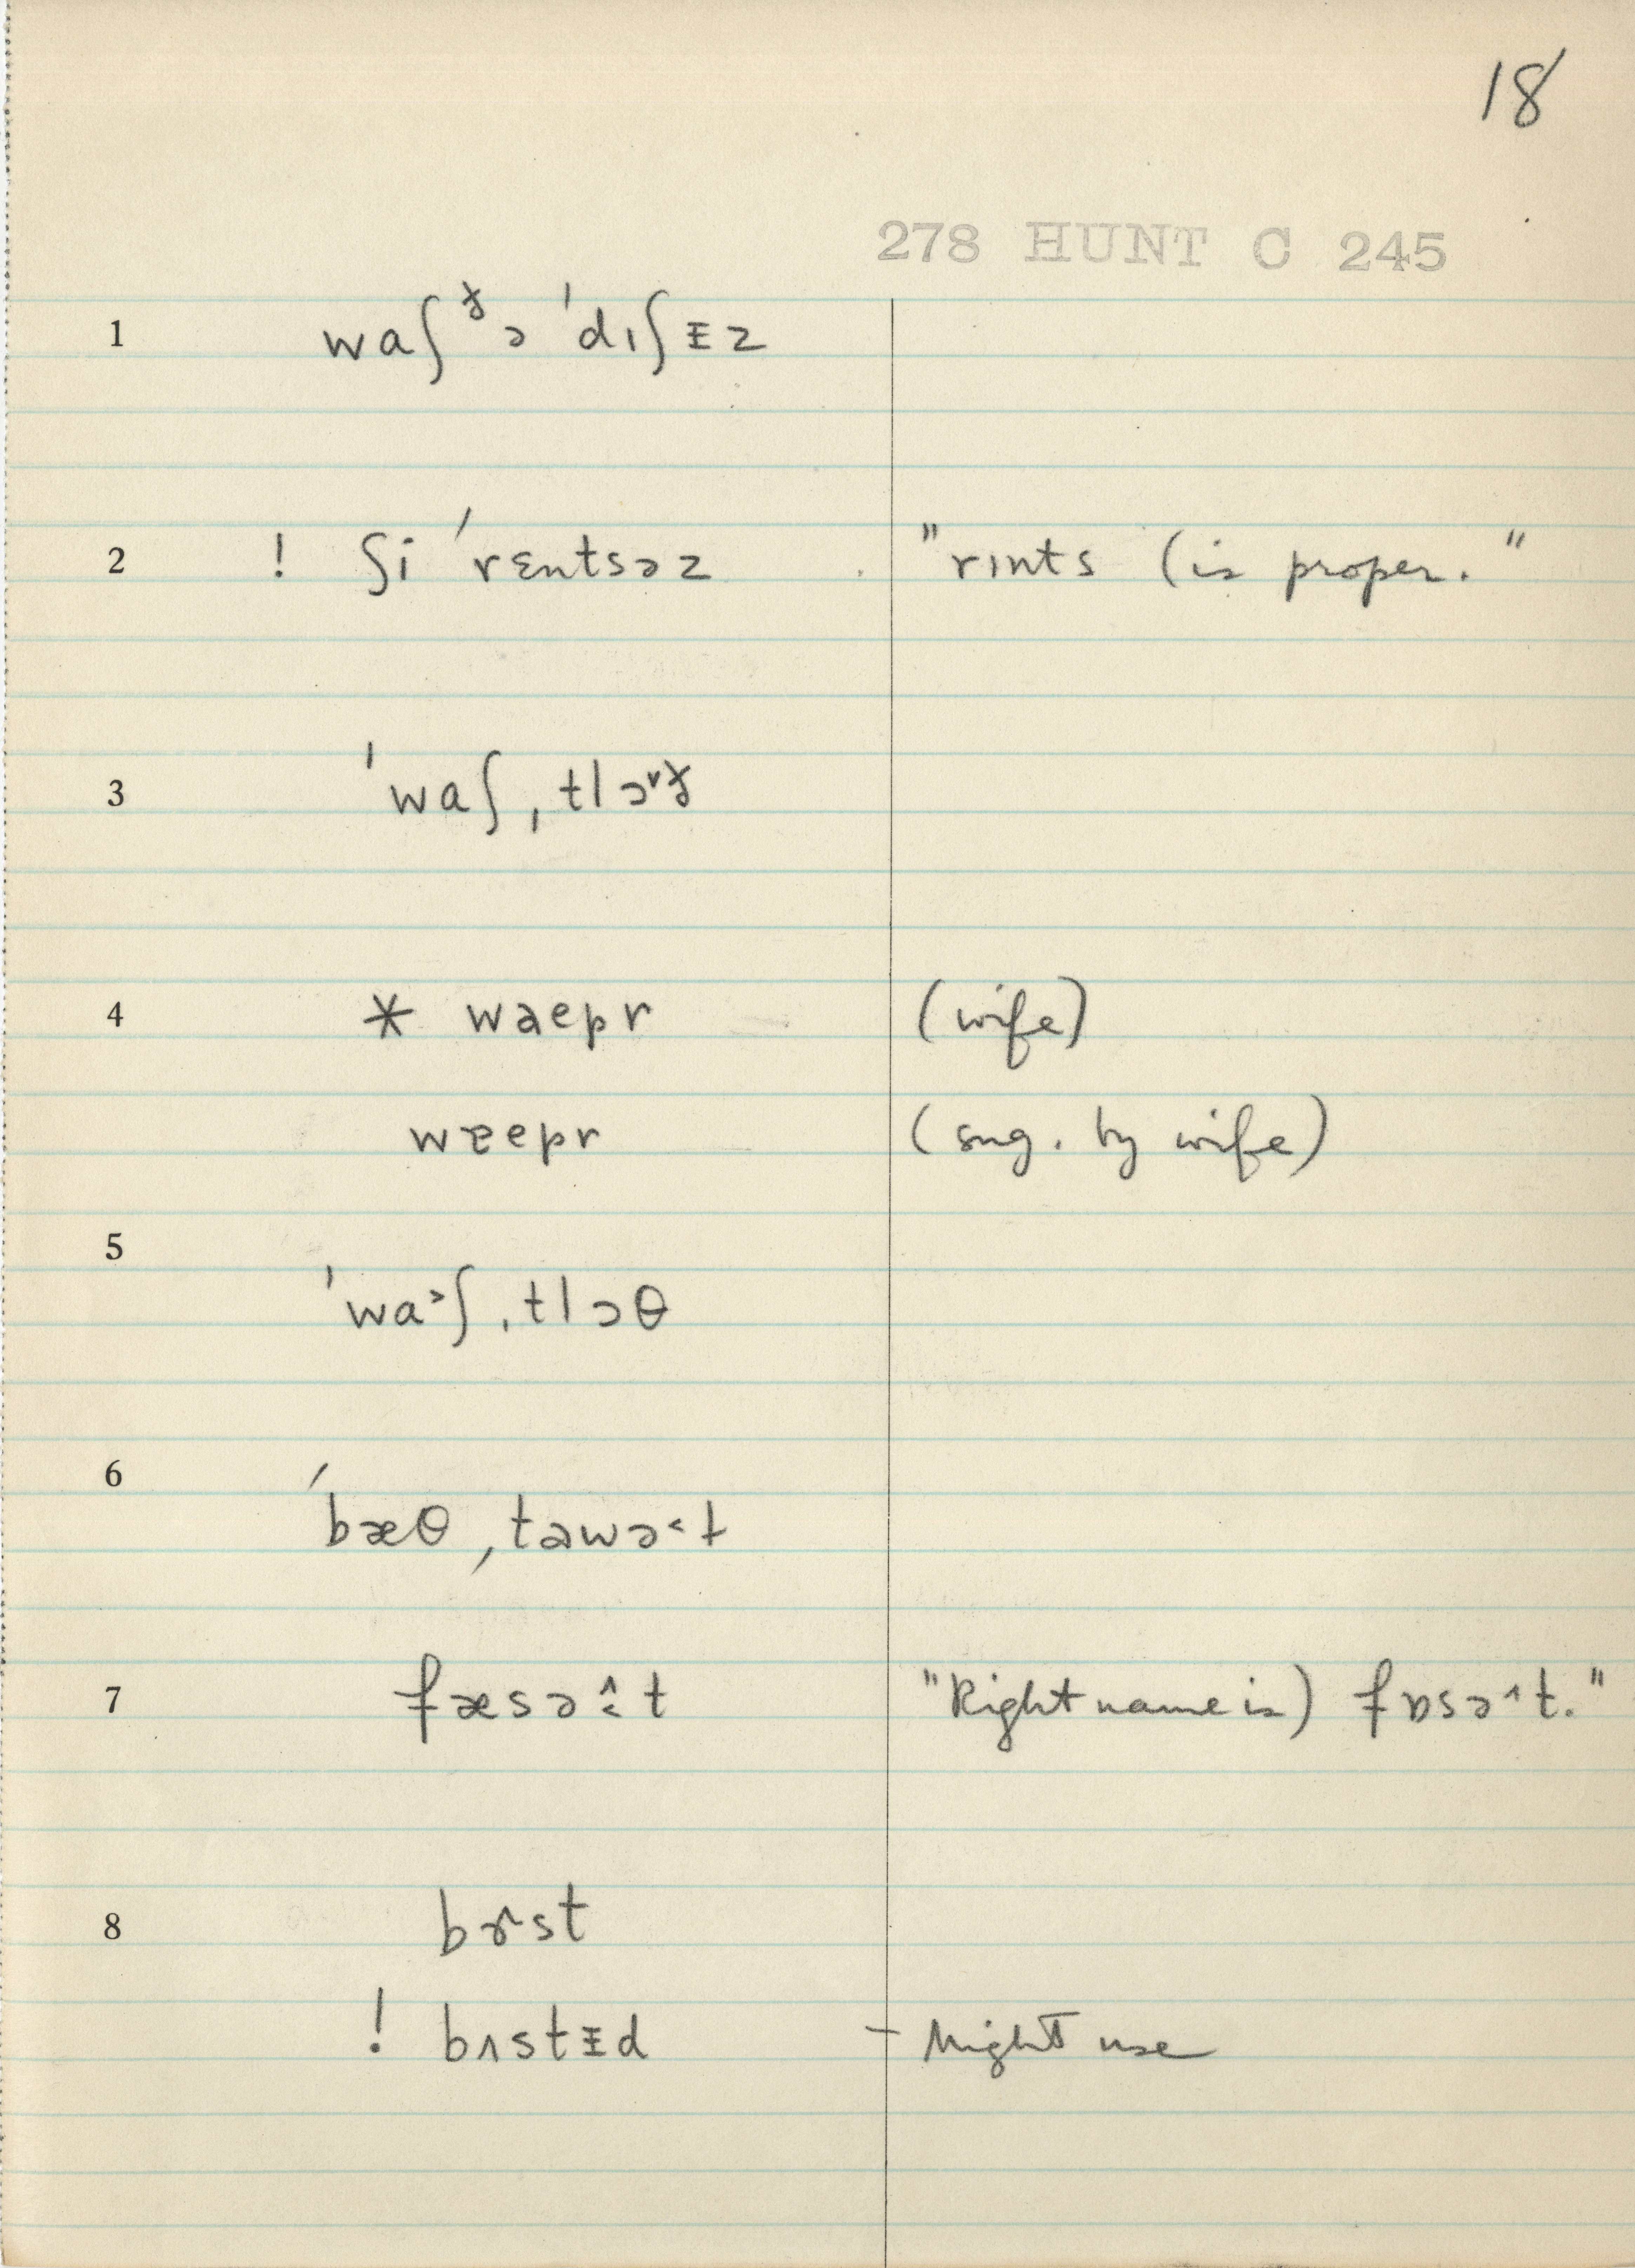 18
278 HUNT C 245
1 waʃ ᵟə ˈdɪʃɪ̵z
2 ! ʃi ˈrɛntsəz "rɪnts (is proper."
3 ˈwaʃˌtlɔ˅ᵟ
4 * waepr (wife)
wɐepr (sug. by wife)
5 ˈwa˃ʃˌtlɔθ
6 ˈbæθˌtawə˂l
7 fæsə˄˂t "Right name is) fɒsə˄t."
8 bɝst
! bʌstɪ̵d - Might use